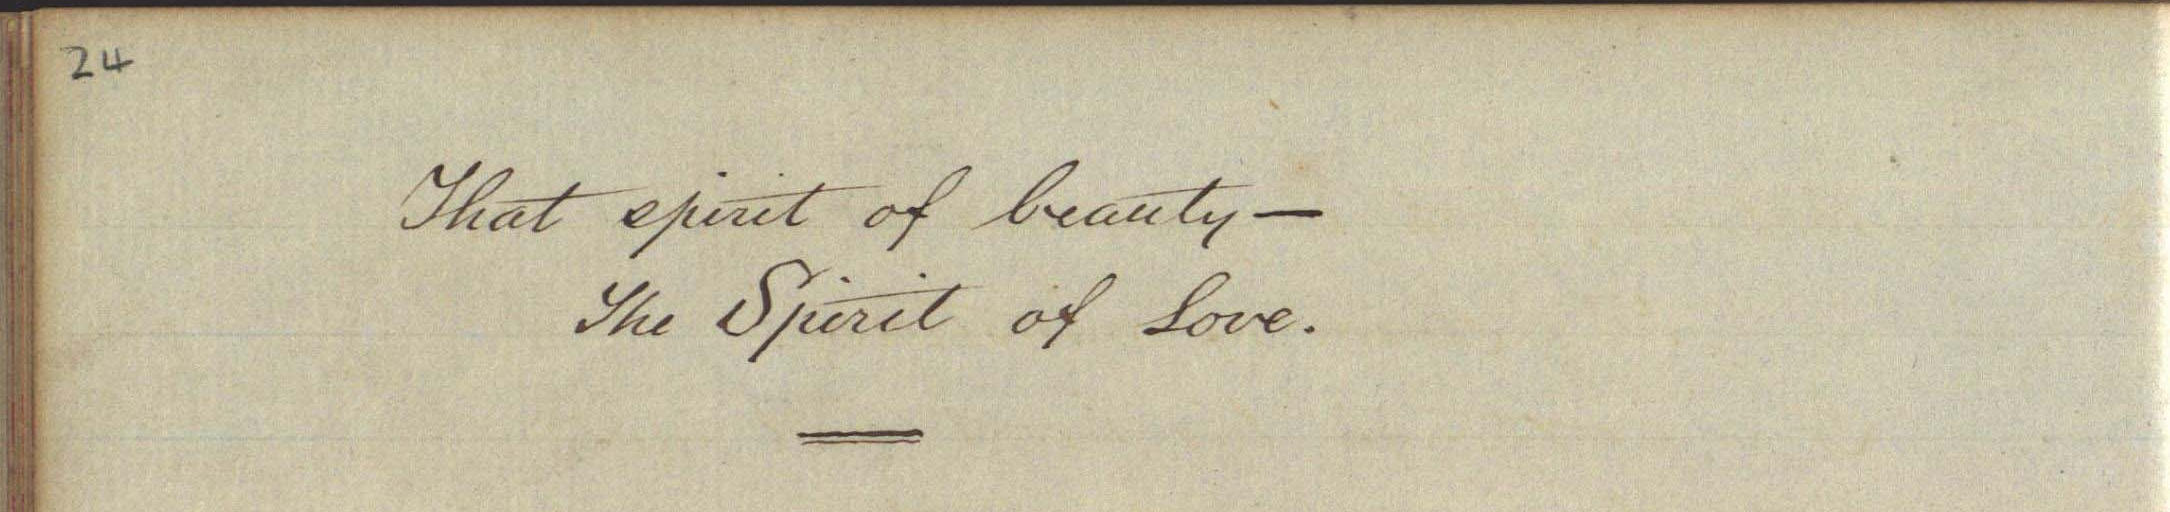 24
That spirit of beauty—
The Spirit of Love.